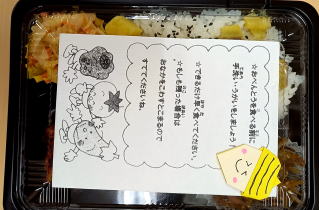 ☆おべんとうを食べる前に
手洗い・うがいをしましょう！
☆できるだけ早く食べてください。
☆もしも残った場合は
おなかをこわすとこまるので
すててくださいね。